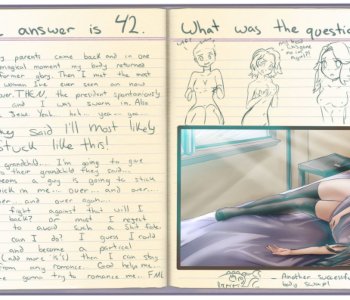 answer is 42.
What was the questio
parents came back and in one
magical moment my body returned
former glory. Then I met the most
woman I've ever seen on now
over. THEN, the president spontaneously
and I was sworn in. Also
yea... yea...
hey said I'll most likely
stuck like this!
grandchild... I'm going to give
to their grandchild they said...
means a guy is going to stick
dick in me... over... and over...
and over... again...
fight against that will I
back? or must I regect
to avoid such a shit fate.
can I do? I guess I could
and become a partical
(add more is's) then I can stay
from any romance. God help me,
are gonna try to romance me. FML
- Another successful
body swap!